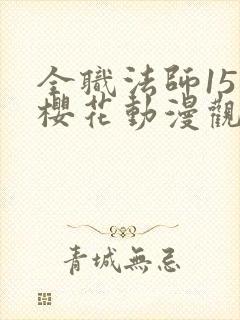 全職法師15
櫻花動漫觀
青城無忌